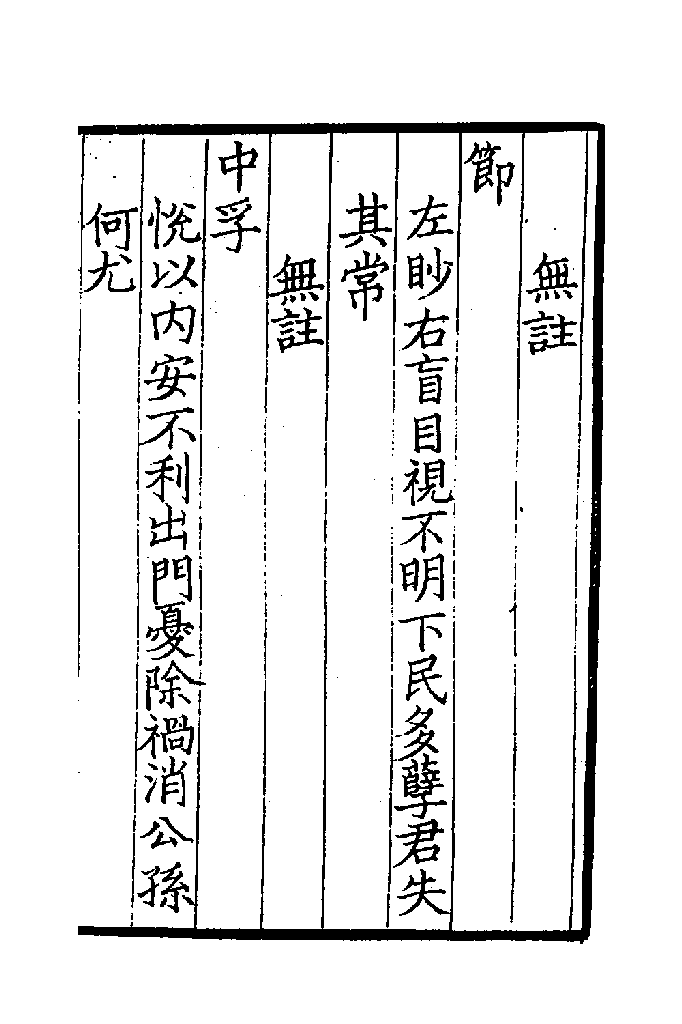 無註
節
左眇右盲目視不明下民多孽君失
其常
無註
中孚
悅以内安不利出門憂除禍消公孫
何尤